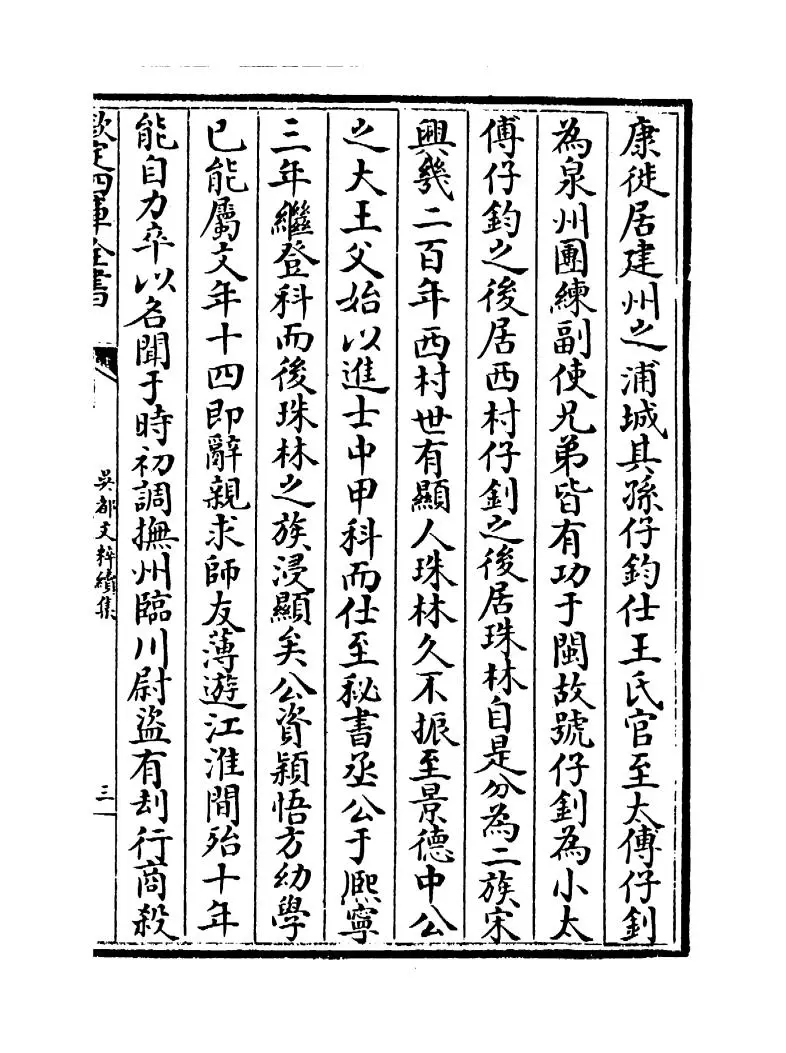 康徙居建州之浦城其孫仔鈞仕王氏官至太傅仔釗
為泉州團練副使兄弟皆有功于閩故號仔釗為小太
傅仔鈞之後居西村仔釗之後居珠林自是分為二族宋
興幾二百年西村世有顯人珠林久不振至景德中公
之大王父始以進士中甲科而仕至秘書丞公于熈寧
三年繼登科而後珠林之族浸顯矣公資穎悟方幼學
已能屬文年十四即辭親求師友薄遊江淮間殆十年
能自力卒以名聞于時初調撫州臨川尉盜有刦行商殺
欽定四庫全書
吳都文粹續集
三